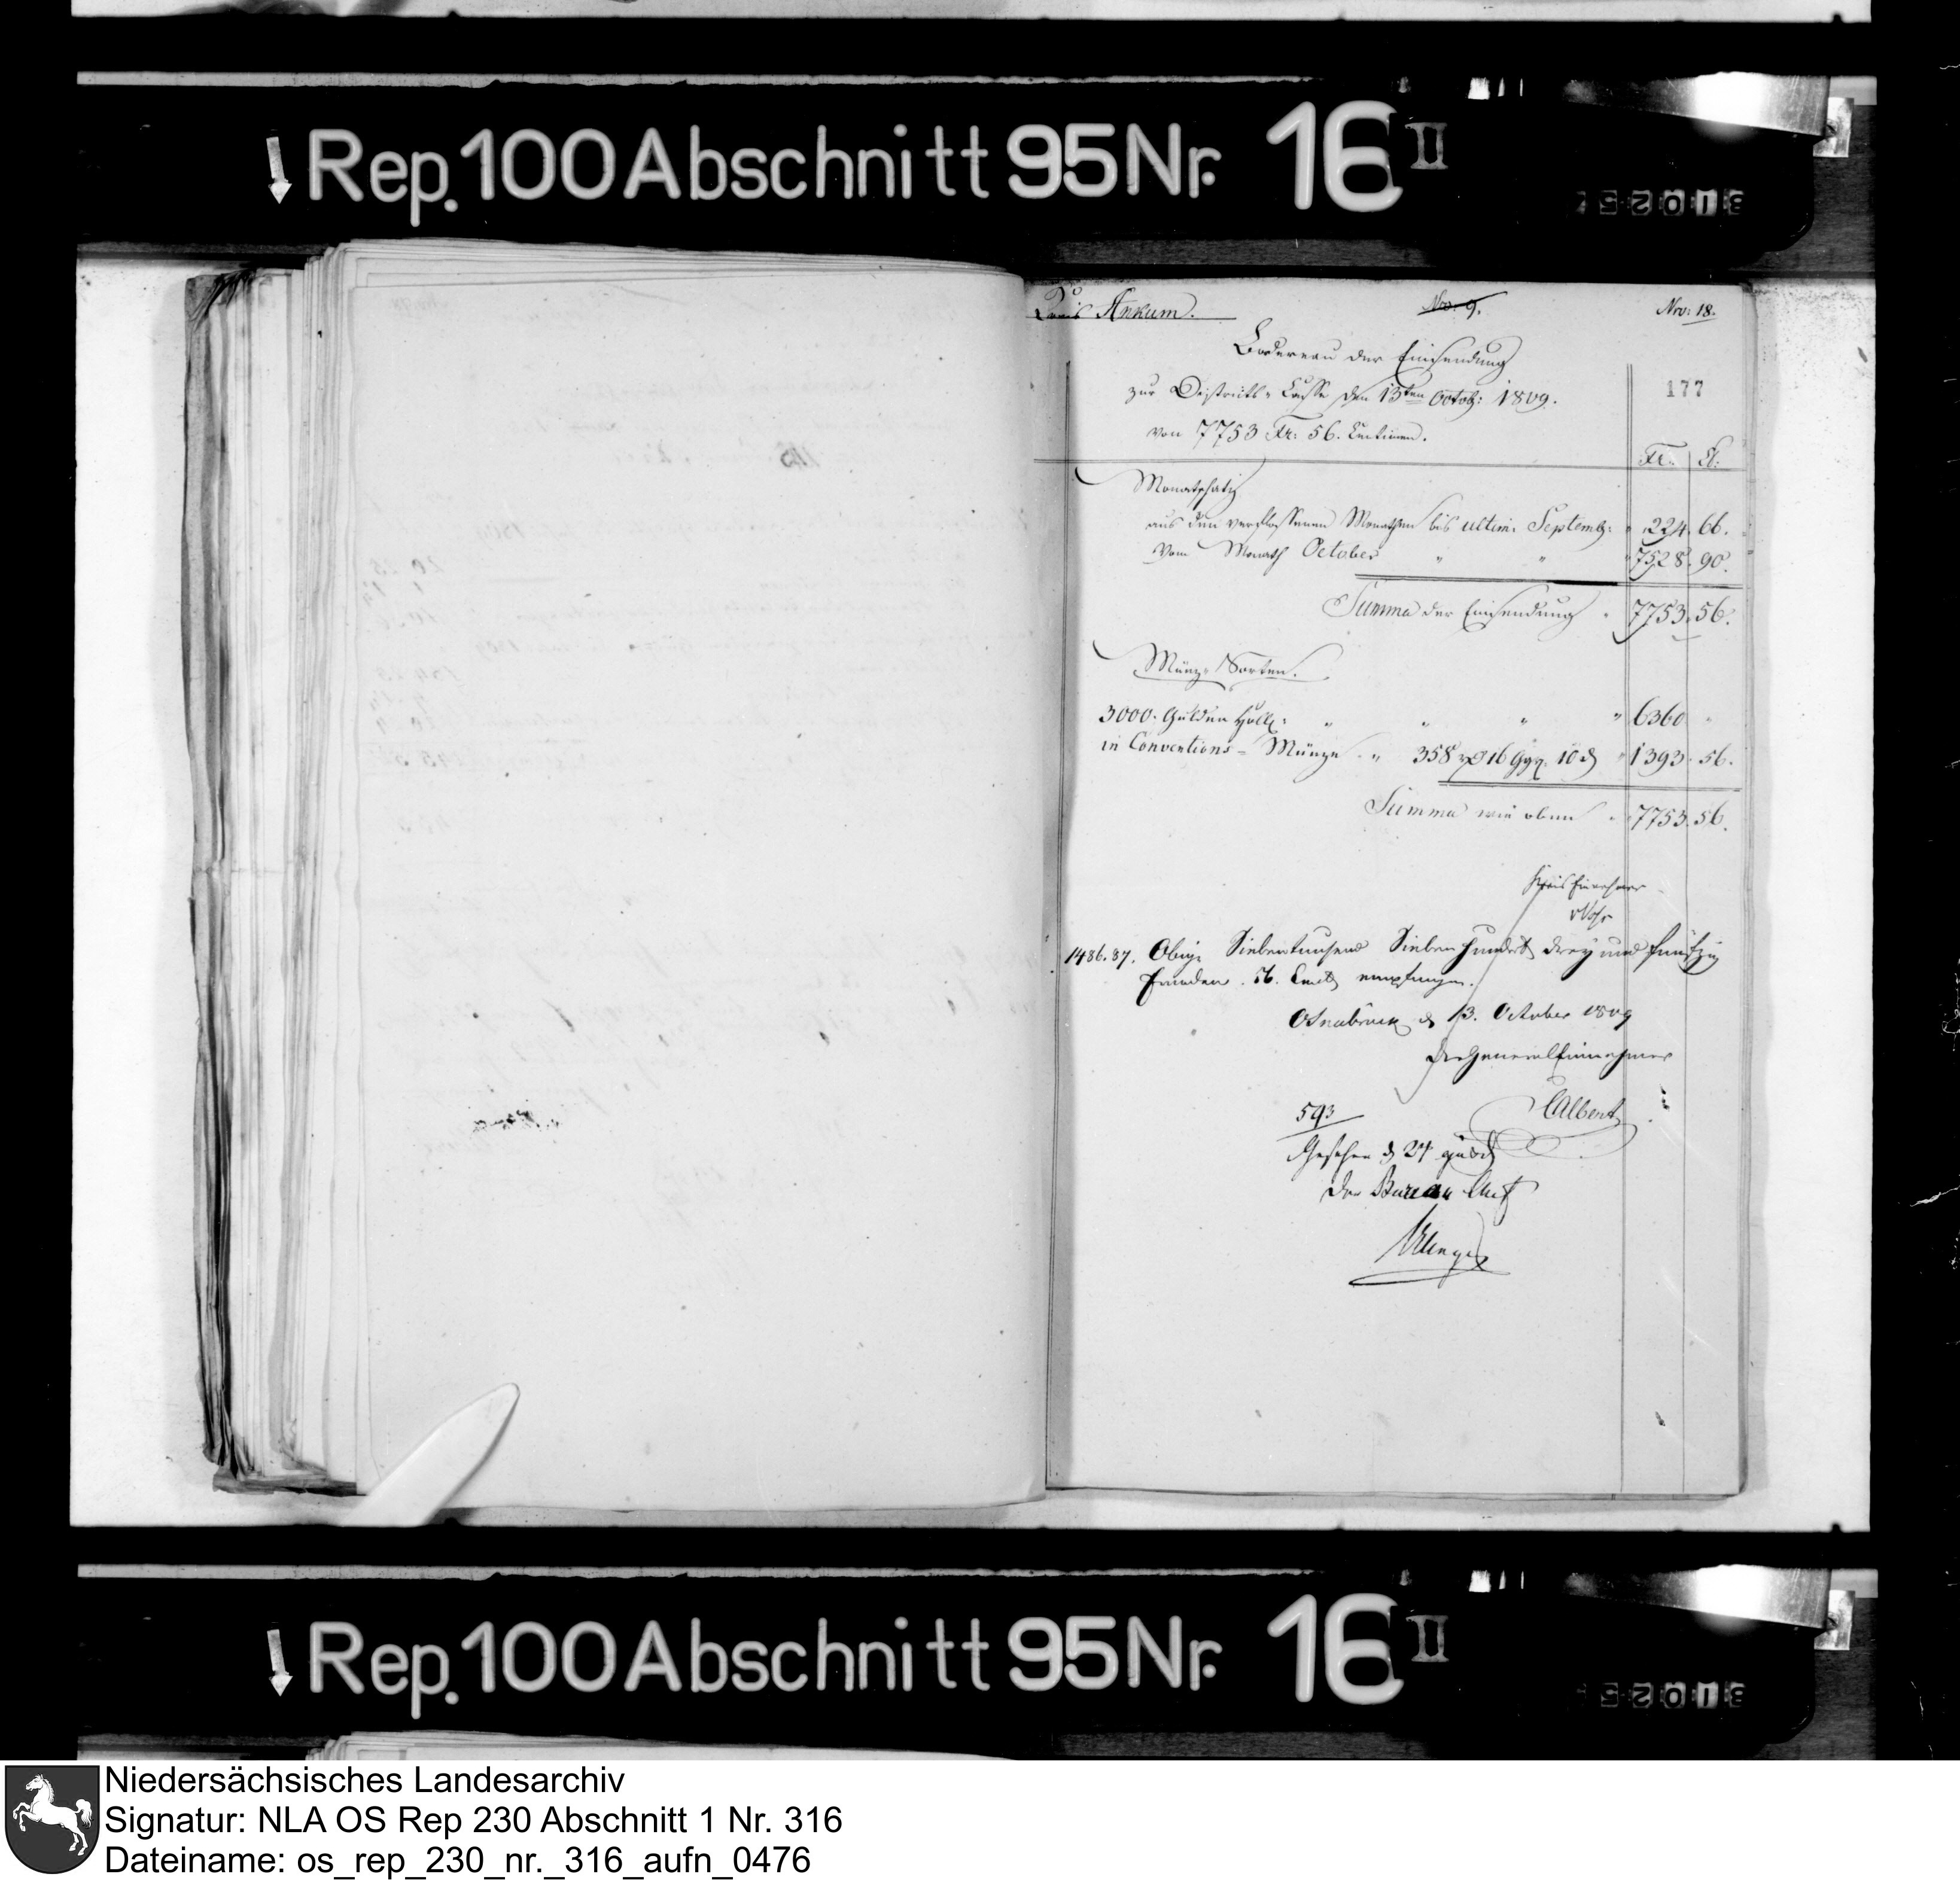 Rep. 100 Abschnitt 95 Nr. 16 II
31025
Kreis Ankum.
Nro: 9.
Nro: 18.
Bordereau der Einsendung
zur Districts-Casse den 13ten Octob: 1809.
177
von 7753 Fr: 56. Centimen.
Fr. Ct:
Monatschatz
aus den verflossenen Monathen bis ultim: Septemb: " 224. 66.
Vom Monath October " " " 7528. 90.
Summa der Einsendung " 7753. 56.
Münz-Sorten.
3000. Gulden Holl: " " " " 6360 "
in Conventions-Münze " 358 rthlr 16 ggr. 10 d " 1393. 56.
Summa wie oben " 7753. 56.
Kreis Einnehmer
1486.87. Obige Siebentausend Sieben hundert drey und funfzig
Franken. 56. Cent empfangen.
Osnabrück d 13. October 1809
Der General Einnehmer
593
Gesehen d 24
Der Bureau Chef
Rep. 100 Abschnitt 95 Nr. 16 II
31025
Niedersächsisches Landesarchiv
Signatur: NLA OS Rep 230 Abschnitt 1 Nr. 316
Dateiname: os_rep_230_nr._316_aufn_0476